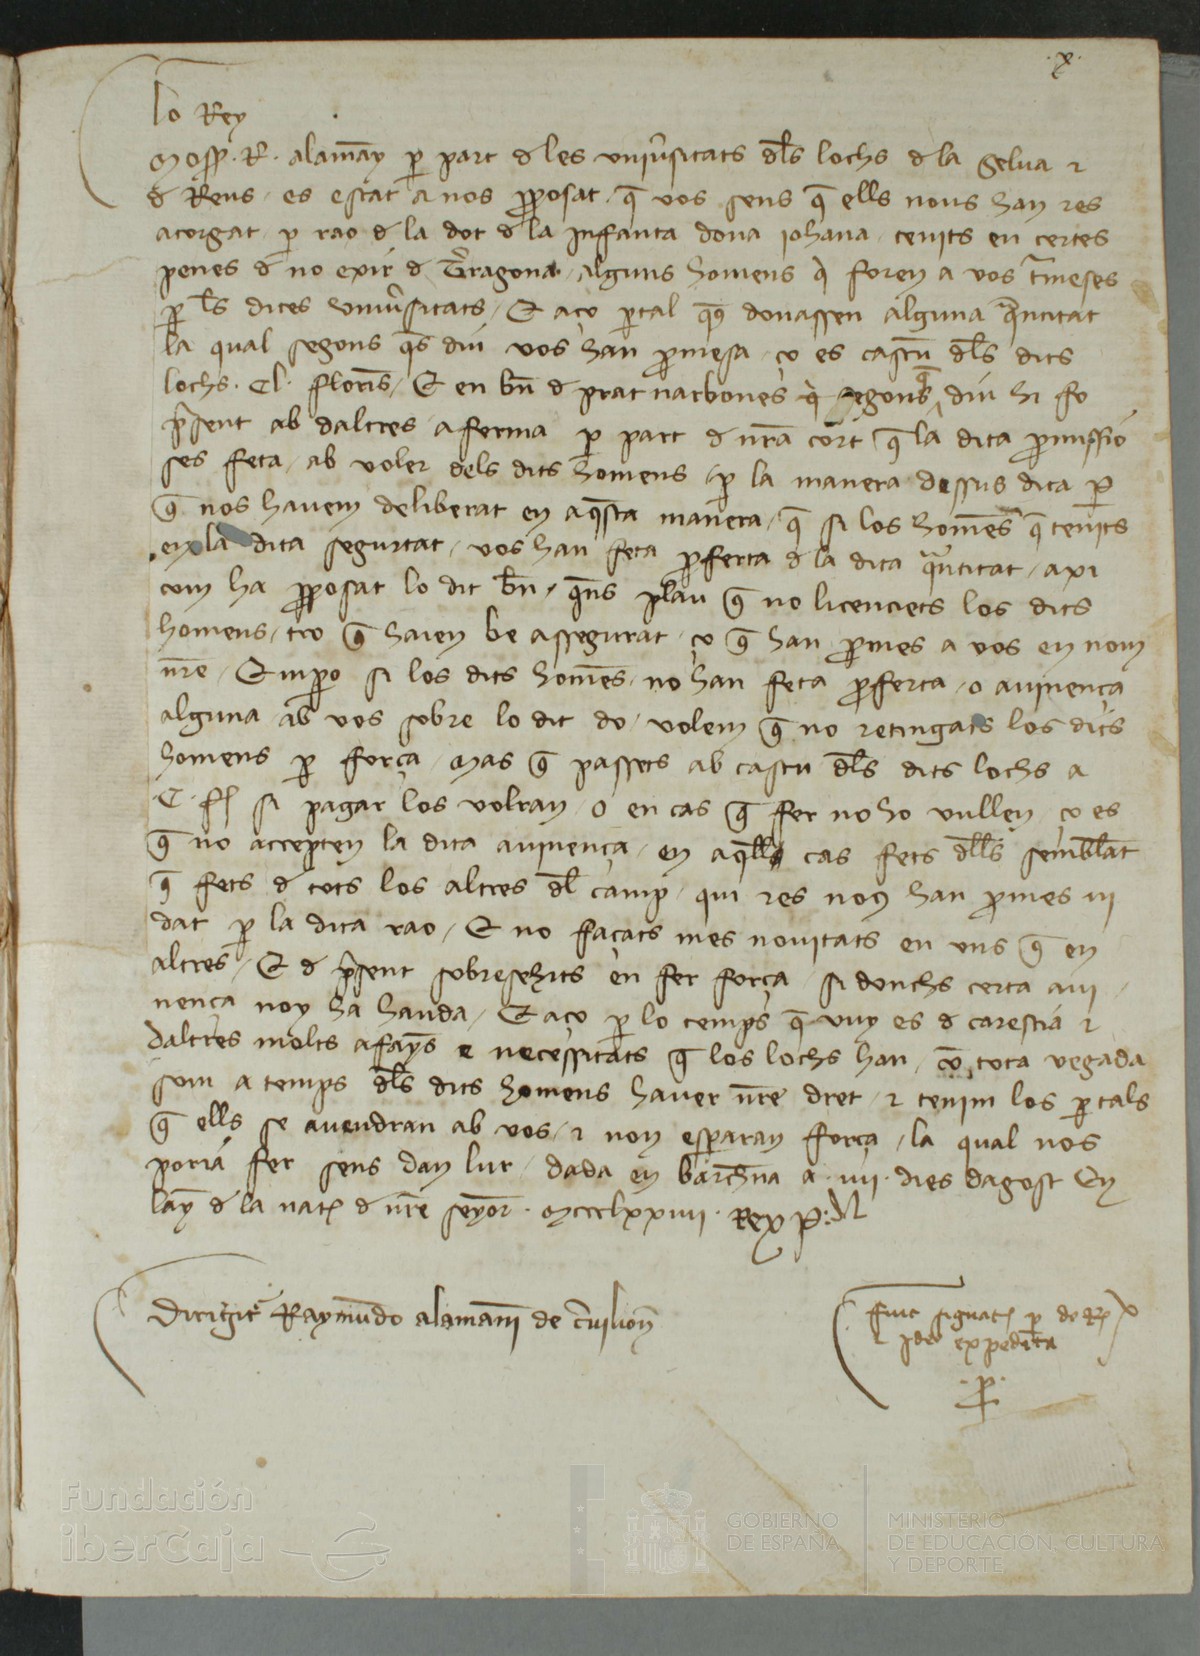 .x.
Lo Rey
Mossen. R. alamany per part de les uniuersitats dels lochs de la Selua e
de Reus, es estat a nos proposat, que vos sens que ells nous han res
atorgat, per rao de la dot de la infanta dona iohana, tenits en certes
penes de no exir de Terragona, alguns homens que foren a vos trameses
per les dites uniuersitats, Et aço per tal queus donassen alguna quantitat
la qual segons ques diu vos han promesa, ço es cascun dels dits
lochs. CL. florins, Et en bñ de prat narbones segons que diu hi fo
present ab daltres, aferma per part de nostra cort que la dita promissio
ses feta, ab voler dels dits homens, per la manera dessus dita per
que nos hauem deliberat en aquesta manera, que si los homens que tenits
en la dita seguretat, vos han feta proferta de la dita quantitat, axi
com ha proposat lo dit bñ, quens plau que no licenciets los dits
homens, tro que haien be assegurat, ço que han promes a vos en nom
nostre, Empero si los dits homens, no han feta proferta, o auinença
alguna ab vos sobre lo dit do, volem que no retingats los dits
homens per força, Mas que passets ab cascu dels dits lochs a
.C. fl si pagar los volran, o en cas que fer no ho vullen, ço es
que no accepten la dita auinença, en aquell cas fets dells semblant
que fets de tots los altres del camp, qui res nous han promes ni
dat per la dita rao, Et no façats mes nouitats en uns que en
altres, Et de present sobresehits en fer força, si donchs certa aui
nença noy ha hauda, Et aço per lo temps que vuy es de carestia e
daltres molts afanys e necessitats que los lochs han, com tota vegada
som a temps dels dits homens hauer nostre dret, e tenim los per tals
que ells se auendran ab vos, e non esperaran força, la qual nos
poria fer sens dan lur, dada en barchna a .iiii. dies dagost En
lany de la nat de nostre senyor. Mccclxxiiii. Rex P.
Dirigitur Raymundo alamanni de ceruilione
fuit signat per d Rex
Ideo expedita
.P.